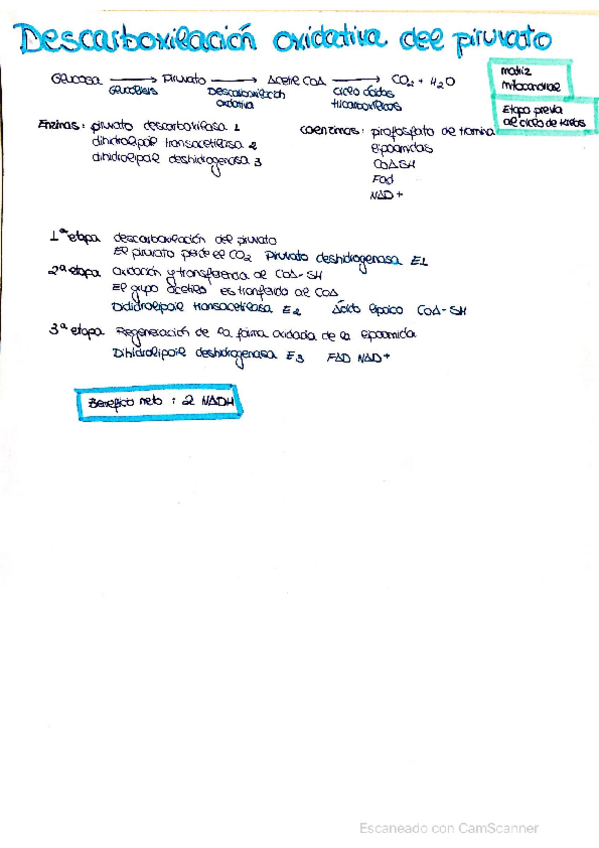 Descarboxilación oxidativa del piruvato
Glucosa → Piruvato → Acetil CoA → CO2 + H2O
Glucolisis Descarboxilación oxidativa Ciclo ácidos tricarboxílicos
matriz
mitocondrial
Etapa previa
al ciclo de Krebs
Enzimas: piruvato descarboxilasa 1
dihidrolipoil transacetilasa 2
dihidrolipoil deshidrogenasa 3
coenzimas: pirofosfato de tiamina
lipoamidas
CoASH
Fad
NAD+
1ª etapa descarboxilación del piruvato
El piruvato pierde el CO2 Piruvato deshidrogenasa E1
2ª etapa Oxidación y transferencia al CoA-SH
El grupo acetilo es tranferido al CoA
Didrolipoil transacetilasa E2 Ácido lipoico CoA-SH
3ª etapa Regeneración de la forma oxidada de la lipoamida
Dihidrolipoil deshidrogenasa E3 FAD NAD+
Beneficio neto : 2 NADH
Escaneado con CamScanner